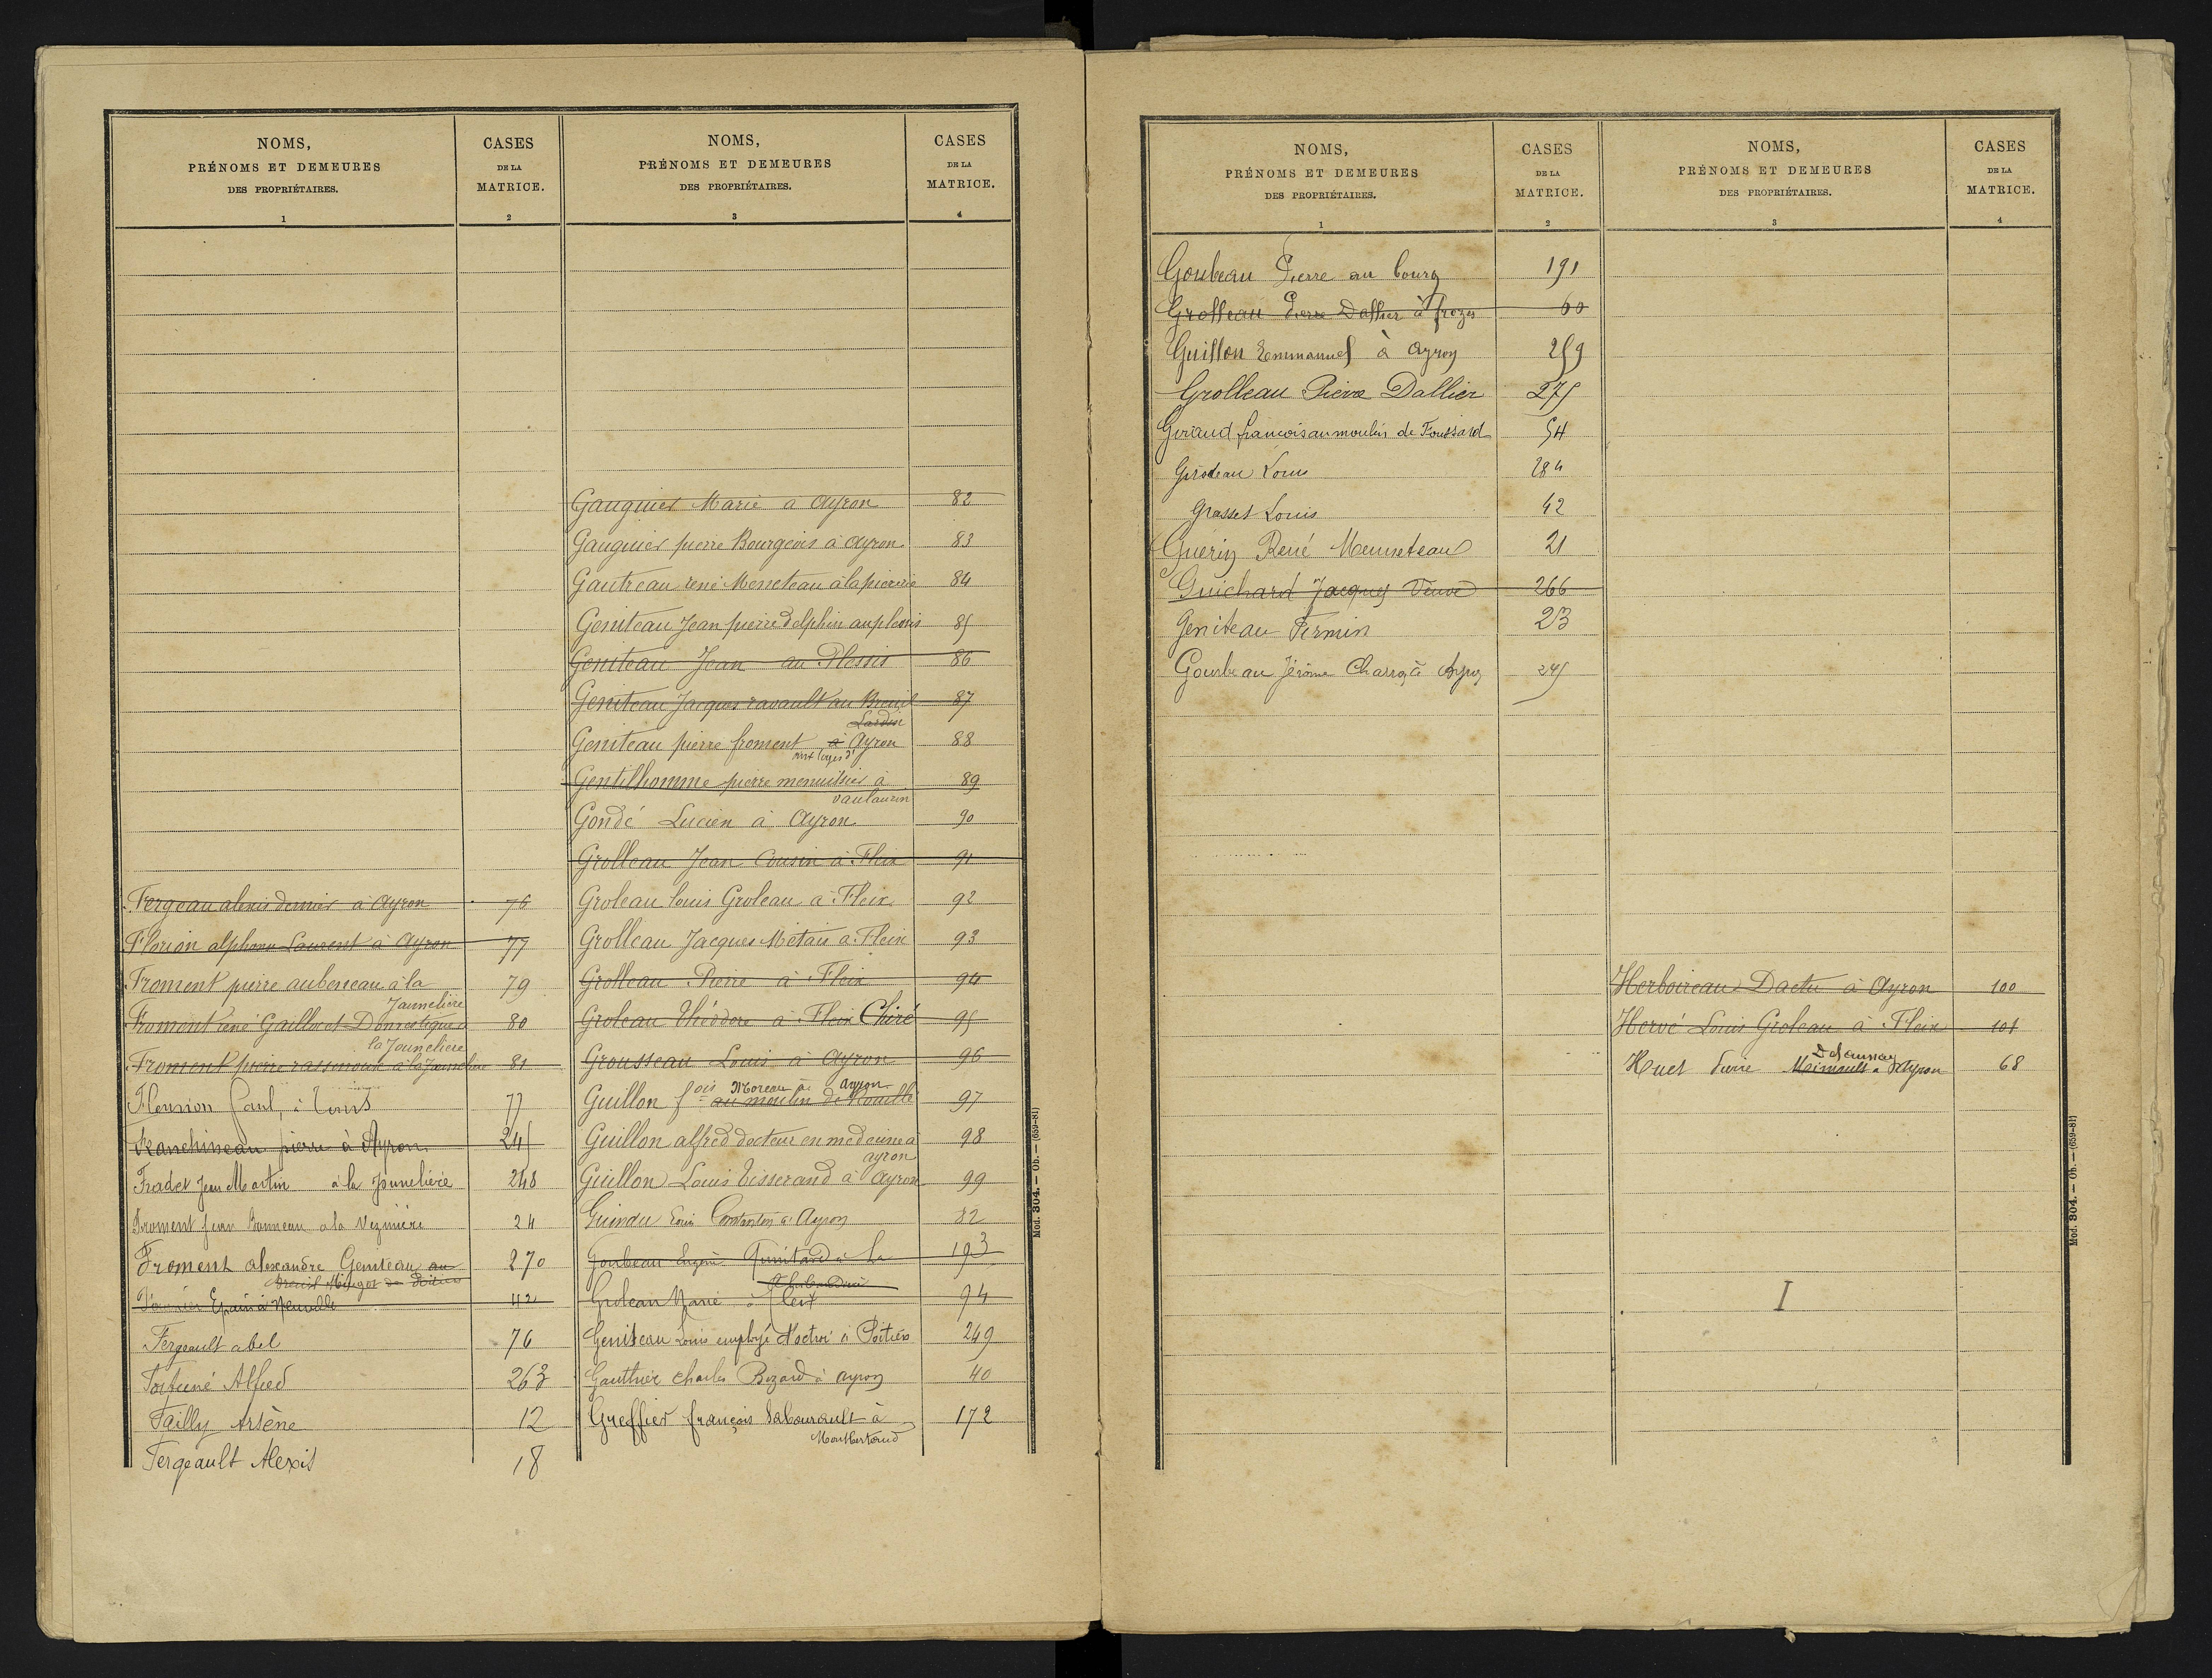 NOMS,
PRÉNOMS ET DEMEURES
DES PROPRIÉTAIRES.
1
CASES
DE LA
MATRICE.
2
Fergeau alexis dernier à Ayron 76
Florian alphonse Laurent à Ayron 77
Froment pierre aubeneau à la 79
Jaunelière
Fromont rené Gaillard Domestique à 80
la Jounelière
Froment pierre rassinoux à la Jaunelière 81
Fleurion Paul, à Tours 77
Franchineau pierre à Ayron 245
Fradet Jean Martin à la Jaunelière 248
Froment Jean Bonneau a la Vezinière 24
Froment alexandre Geniteau au 270
Breuil Mingot de Poitiers
Epain à Neuville 42
Fergeault abel 76
Fortuné Alfred 263
Failly Arsène 12
Fergeault Alexis 18
NOMS,
PRÉNOMS ET DEMEURES
DES PROPRIÉTAIRES.
3
CASES
DE LA
MATRICE.
4
Gauguier Marie à Ayron 82
Gauguier pierre Bourgeois à Ayron 83
Gautreau rené Meneteau à la pierrerie 84
Geniteau Jean pierre delphin au plessis 85
Geniteau Jean au Plessis 86
Geniteau Jacques ravault au Breuil 87
Lardin
Geniteau pierre froment à Ayron 88
aux loges d'
Gentilhomme pierre menuisier à 89
vaulaurin
Gondé Lucien à Ayron 90
Grolleau Jean Cousin à Fleix 91
Groleau louis Groleau à Fleix 92
Grolleau Jacques Métais à Fleix 93
Grolleau Pierre à Fleix 94
Groleau Théodore à Fleix Chiré 95
Grousseau Louis à Ayron 96
Moreau à ayron
Guillon fois au moulin de Rouille 97
Guillon alfred docteur en medecine à 98
ayron
Guillon Louis tisserand à Ayron 99
Guindu Louis Constantin à Ayron 82
Goubeau Eugène Quintard à la 193
Groleau Marie à Fleix 94
Geniteau Louis employé d'octroi à Poitiers 249
Gauthier charles Bozard à ayron 40
Greffier françois Sabourault à 172
Montbertaud
Mod. 304. — Ob. — (659-81)
NOMS,
PRÉNOMS ET DEMEURES
DES PROPRIÉTAIRES.
1
CASES
DE LA
MATRICE.
2
Goubeau Pierre au bourg 191
Grolleau Pierre Dallier à frozes 60
Guillon Emmanuel à Ayron 259
Grolleau Pierre Dallier 275
Giraud francois au moulin de Foussard 54
Girodeau Louis 284
Grasset Louis 42
Guerin René Meuneteau 21
Guichard Jacques Veuve 266
Geniteau Firmin 23
Gourbeau Jérôme Charron à Ayron 245
NOMS,
PRÉNOMS ET DEMEURES
DES PROPRIÉTAIRES.
3
CASES
DE LA
MATRICE.
4
Herboireau Dactu à Ayron 100
Hervé Louis Groleau à Fleix 101
Delaunay
Huet Pierre Meinault à Ayron 68
I
Mod. 304. — Ob. — (659-81)